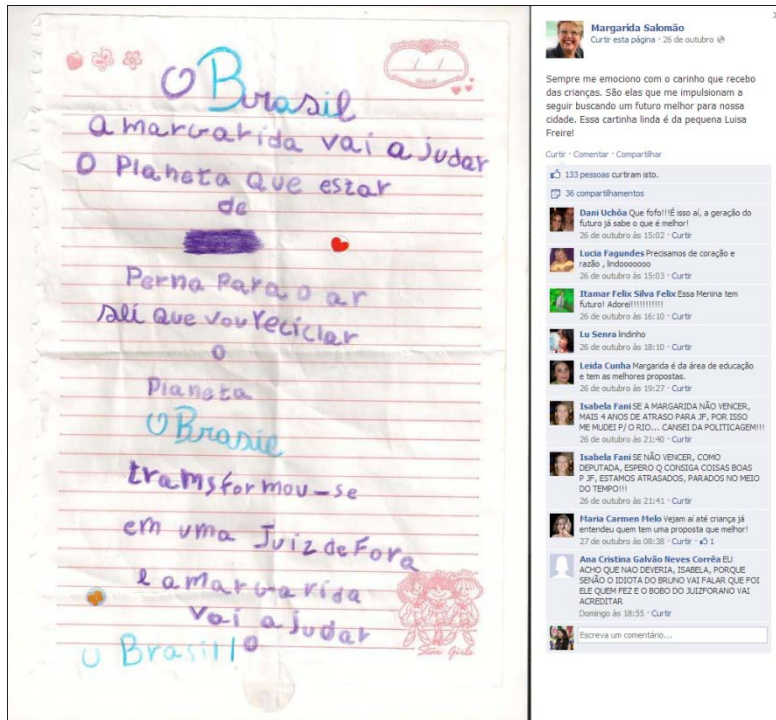 O Brasil
a marvarida vai ajudar
O Planeta Que estar
de
Perna Para o ar
sei que vou reciclar
o
Planeta
O Brasil
transformou-se
em uma Juiz de Fora
e a marvarida
vai ajudar
o Brasil!o
Star Girls
Margarida Salomão
Curtir esta página · 26 de outubro
Sempre me emociono com o carinho que recebo
das crianças. São elas que me impulsionam a
seguir buscando um futuro melhor para nossa
cidade. Essa cartinha linda é da pequena Luisa
Freire!
Curtir · Comentar · Compartilhar
133 pessoas curtiram isto.
36 compartilhamentos
Dani Uchôa Que fofo!!!É isso aí, a geração do
futuro já sabe o que é melhor!
26 de outubro às 15:02 · Curtir
Lucia Fagundes Precisamos de coração e
razão , lindooooooo
26 de outubro às 15:03 · Curtir
Itamar Felix Silva Felix Essa Menina tem
futuro! Adorei!!!!!!!!!!!
26 de outubro às 16:10 · Curtir
Lu Senra lindinho
26 de outubro às 18:10 · Curtir
Leida Cunha Margarida é da área de educação
e tem as melhores propostas.
26 de outubro às 19:27 · Curtir
Isabela Fani SE A MARGARIDA NÃO VENCER,
MAIS 4 ANOS DE ATRASO PARA JF, POR ISSO
ME MUDEI P/ O RIO... CANSEI DA POLITICAGEM!!!
26 de outubro às 21:40 · Curtir
Isabela Fani SE NÃO VENCER, COMO
DEPUTADA, ESPERO Q CONSIGA COISAS BOAS
P JF, ESTAMOS ATRASADOS, PARADOS NO MEIO
DO TEMPO!!!
26 de outubro às 21:41 · Curtir
Maria Carmen Melo Vejam aí até criança já
entendeu quem tem uma proposta que melhor!
27 de outubro às 08:38 · Curtir · 1
Ana Cristina Galvão Neves Corrêa EU
ACHO QUE NAO DEVERIA, ISABELA, PORQUE
SENÃO O IDIOTA DO BRUNO VAI FALAR QUE FOI
ELE QUEM FEZ E O BOBO DO JUIZFORANO VAI
ACREDITAR
Domingo às 18:55 · Curtir
Escreva um comentário...